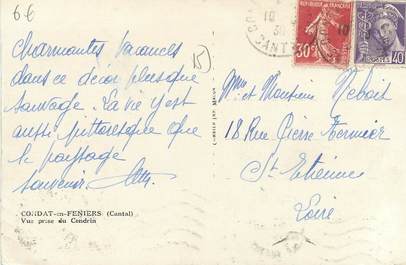 6 6
15
Charmantes vacances
dans ce décor presque
sauvage. La vie y est
aussi pittoresque que
le paysage
souvenir
CONDAT-en-FENIERS (Cantal)
Vue prise du Condrin
REPUBLIQUE FRANÇAISE
30c
POSTES
40
Mme et Monsieur Reboit
18 Rue Pierre Termier
St Etienne
Loire